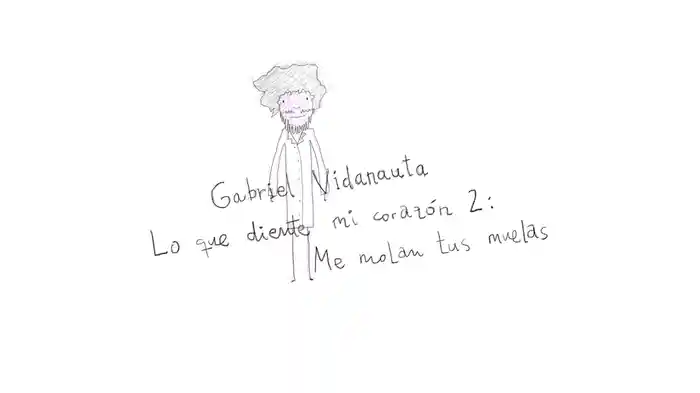 Gabriel Vidanauta
Lo que diente mi corazón 2:
Me molan tus muelas